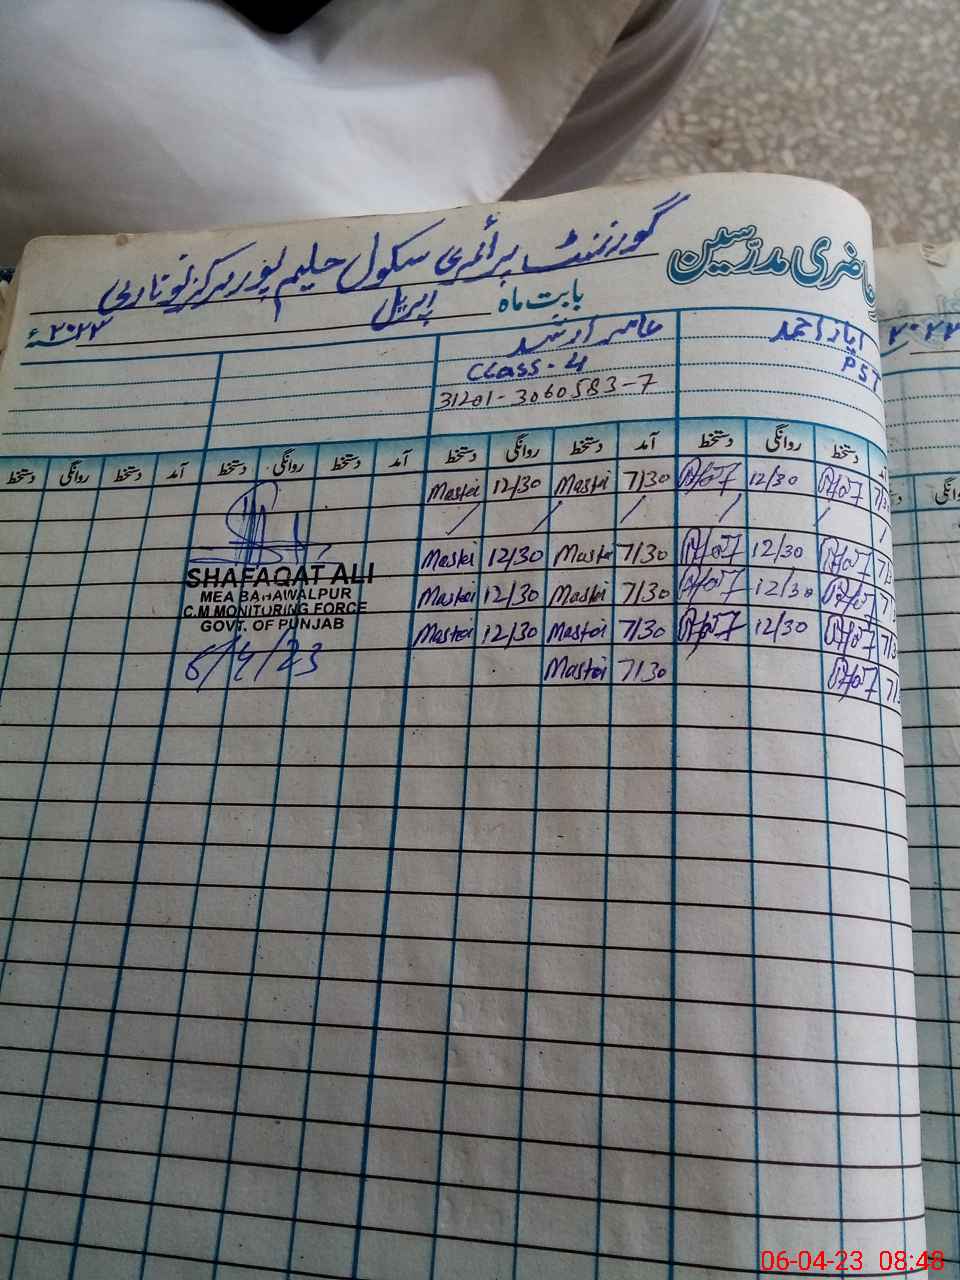 حاضری مدرّسین گورنمنٹ پرائمری سکول حلیم پور مرکز نوناری
بابت ماہ اپریل ۲۰۲۳ء
ایاز احمد
PST
عامر ارشد
Class-4
31201-3060583-7
آمد دستخط روانگی دستخط آمد دستخط روانگی دستخط آمد دستخط روانگی دستخط دستخط روانگی دستخط
Mastoi 12/30 Mastoi 7/30 12/30
Mastoi 12/30 Mastoi 7/30 12/30
Mastoi 12/30 Mastoi 7/30 12/30
Mastoi 12/30 Mastoi 7/30 12/30
Mastoi 7/30
SHAFAQAT ALI
MEA BAHAWALPUR
C.M MONITURING FORCE
GOVT. OF PUNJAB
6/4/23
۲۰۲۳
06-04-23 08:48